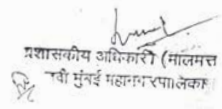 प्रशासकीय अधिकारी (मालमत्त
नवी मुंबई महानगरपालिका